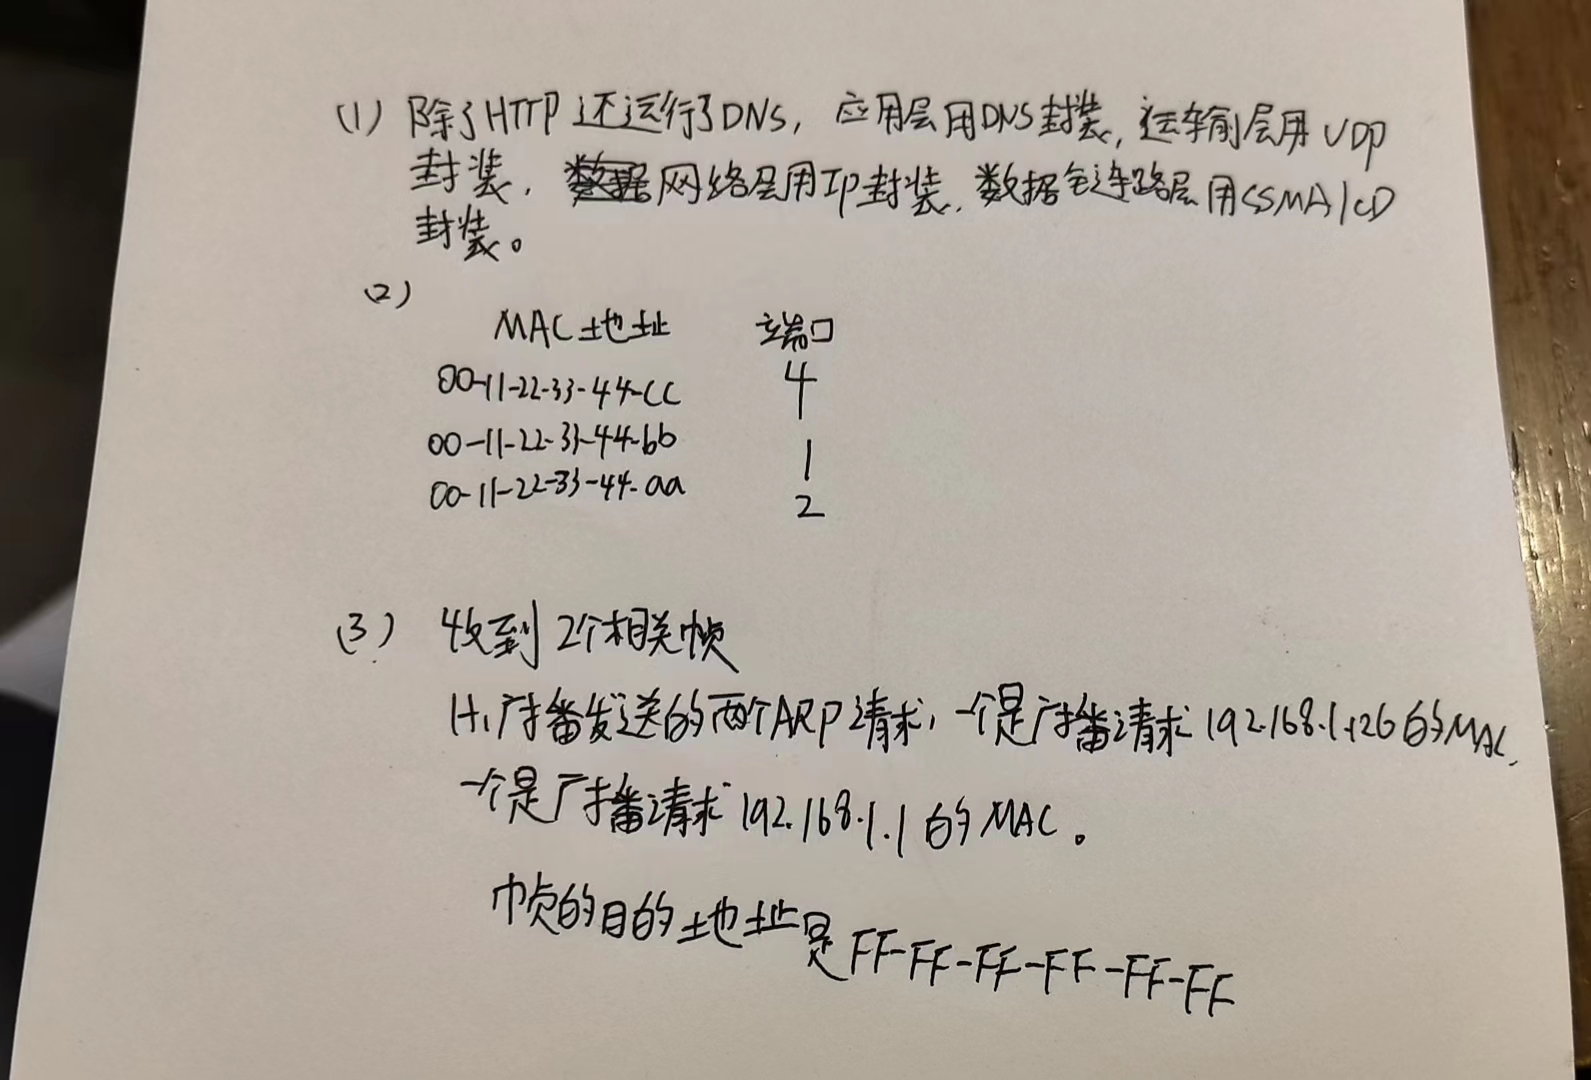 (1) 除了HTTP还运行了DNS, 应用层用DNS封装, 运输层用UDP
封装, 网络层用IP封装, 数据链路层用CSMA/CD
封装。
(2)
MAC地址 端口
00-11-22-33-44-CC 4
00-11-22-33-44-bb 1
00-11-22-33-44-aa 2
(3) 收到2个相关帧
H1广播发送的两个ARP请求, 一个是广播请求192.168.1.126的MAC,
一个是广播请求192.168.1.1的MAC。
帧的目的地址是FF-FF-FF-FF-FF-FF